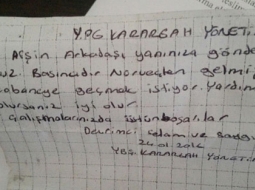 Y.P.G KARARGAH YÖNETİ..
Afşin Arkadaşı yanınıza gönde
uz. Basıncıdır Norveçten gelmi
obaneye geçmek istiyor. Yardım
olursanız iyi olur
Çalışmalarınızda üstün başarılar
Devrimci selam ve saygı
YPG KARARGAH YÖNETİ